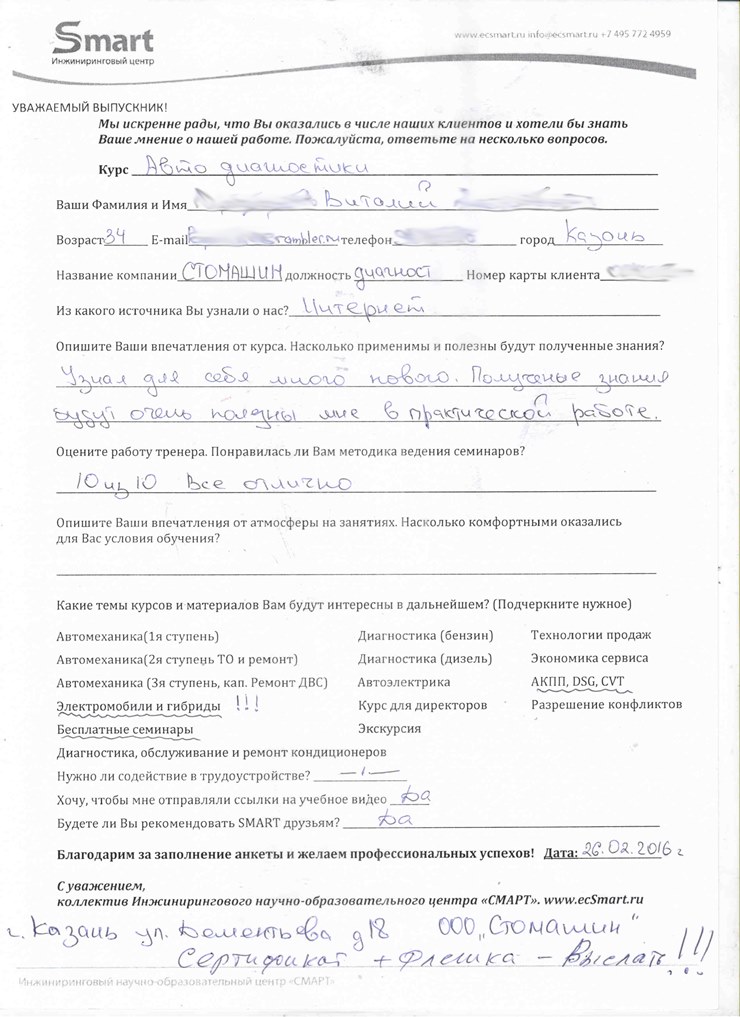 Smart
Инжиниринговый центр
www.ecsmart.ru info@ecsmart.ru +7 495 772 4959
УВАЖАЕМЫЙ ВЫПУСКНИК!
Мы искренне рады, что Вы оказались в числе наших клиентов и хотели бы знать
Ваше мнение о нашей работе. Пожалуйста, ответьте на несколько вопросов.
Курс Авто диагностики
Ваши Фамилия и Имя Виталий
Возраст 34 E-mail rambler.ru телефон город Казань
Название компании СТОМАШИН должность диагност Номер карты клиента
Из какого источника Вы узнали о нас? Интернет
Опишите Ваши впечатления от курса. Насколько применимы и полезны будут полученные знания?
Узнал для себя много нового. Полученые знания
будут очень полезны мне в практической работе.
Оцените работу тренера. Понравилась ли Вам методика ведения семинаров?
10 из 10 Все отлично
Опишите Ваши впечатления от атмосферы на занятиях. Насколько комфортными оказались
для Вас условия обучения?
Какие темы курсов и материалов Вам будут интересны в дальнейшем? (Подчеркните нужное)
Автомеханика(1я ступень) Диагностика (бензин) Технологии продаж
Автомеханика(2я ступень ТО и ремонт) Диагностика (дизель) Экономика сервиса
Автомеханика (3я ступень, кап. Ремонт ДВС) Автоэлектрика АКПП, DSG, CVT
Электромобили и гибриды !!! Курс для директоров Разрешение конфликтов
Бесплатные семинары Экскурсия
Диагностика, обслуживание и ремонт кондиционеров
Нужно ли содействие в трудоустройстве?
Хочу, чтобы мне отправляли ссылки на учебное видео Да
Будете ли Вы рекомендовать SMART друзьям? Да
Благодарим за заполнение анкеты и желаем профессиональных успехов! Дата: 26.02.2016 г
С уважением,
коллектив Инжинирингового научно-образовательного центра «СМАРТ». www.ecSmart.ru
г. Казань ул. Дементьева д18 ООО „Стомашин"
Сертификат + Флешка – Выслать!!!
Инжиниринговый научно-образовательный центр «СМАРТ»